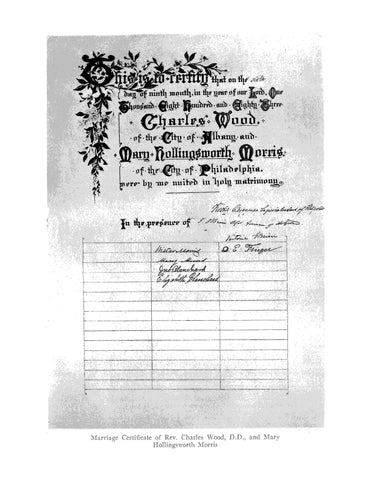 This is to certify that on the sixth
day of ninth month, in the year of our Lord, One
Thousand Eight Hundred and Eighty Three
Charles Wood,
of the City of Albany, and
Mary Hollingsworth Morris,
of the City of Philadelphia,
were by me united in holy matrimony.
In the presence of
D. E. Kruger
Mary Morris
Jno Blanchard
Elizabeth Blanchard
Marriage Certificate of Rev. Charles Wood, D.D., and Mary
Hollingsworth Morris